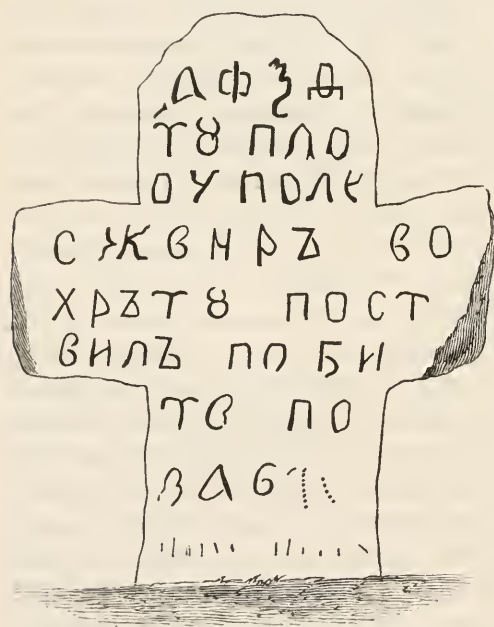 ҂АФѮД
ТȢ ПЛО
ОУ ПОЛЕ
С ЖВНРЪ ВО
ХРЪТȢ ПОСТ
ВИЛЪ ПО БИ
ТВ ПО
ЗАВ